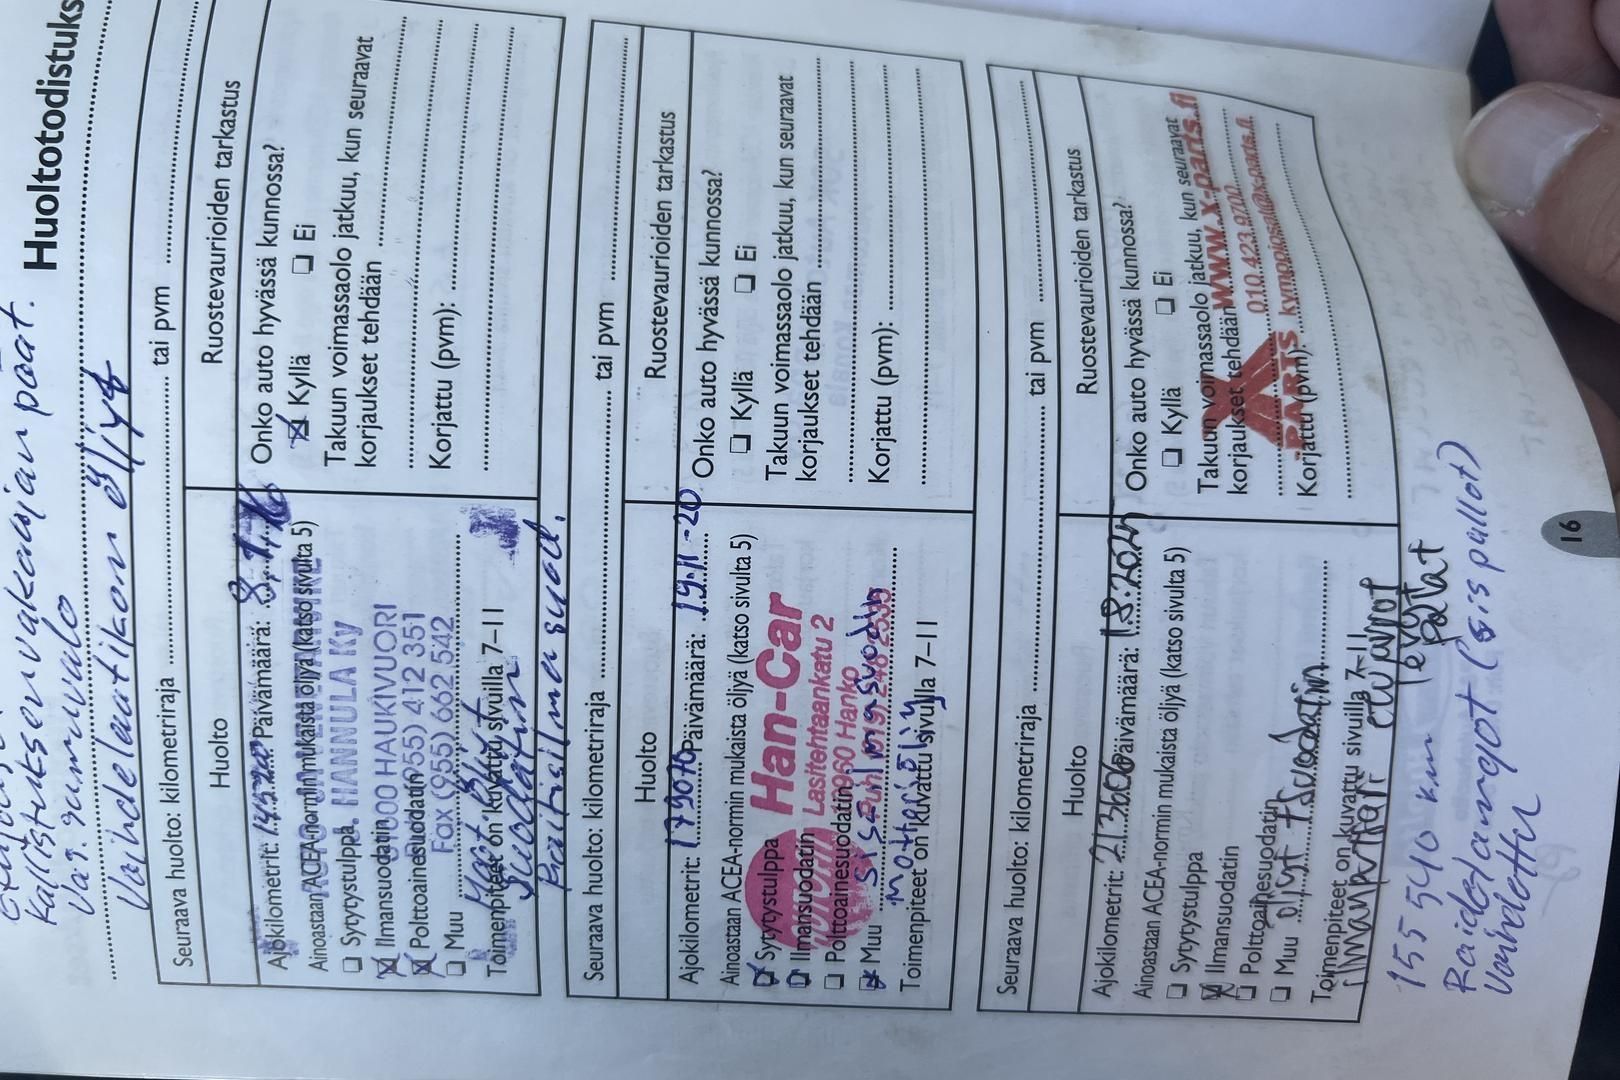 Huoltotodistuks
Kallistuksenvakaajan päät.
Vas. sumuvalo
Vaihdelaatikon öljyt
Seuraava huolto: kilometriraja ........ tai pvm ........
Huolto
Ruostevaurioiden tarkastus
Ajokilometrit: Päivämäärä: 8.1.16
Ainoastaan ACEA-normin mukaista öljyä (katso sivulta 5)
HANNULA Ky
HAUKIVUORI
(955) 412 351
Fax (955) 662 542
☐ Sytytystulppa
☒ Ilmansuodatin
☒ Polttoainesuodatin
☐ Muu
Toimenpiteet on kuvattu sivuilla 7–11
suodatin
raitisilmasuod.
Onko auto hyvässä kunnossa?
☒ Kyllä ☐ Ei
Takuun voimassaolo jatkuu, kun seuraavat
korjaukset tehdään ........
Korjattu (pvm): ........
Seuraava huolto: kilometriraja ........ tai pvm ........
Huolto
Ruostevaurioiden tarkastus
Ajokilometrit: 179070 Päivämäärä: 19.11-20
Ainoastaan ACEA-normin mukaista öljyä (katso sivulta 5)
Han-Car
Lasitehtaankatu 2
10960 Hanko
☒ Sytytystulppa
☒ Ilmansuodatin
☐ Polttoainesuodatin
☒ Muu Sisäilmasuodatin
Moottoriöljy
Toimenpiteet on kuvattu sivuilla 7–11
Onko auto hyvässä kunnossa?
☐ Kyllä ☐ Ei
Takuun voimassaolo jatkuu, kun seuraavat
korjaukset tehdään ........
Korjattu (pvm): ........
Seuraava huolto: kilometriraja ........ tai pvm ........
Huolto
Ruostevaurioiden tarkastus
Ajokilometrit: 213606 Päivämäärä: 1.8.2024
Ainoastaan ACEA-normin mukaista öljyä (katso sivulta 5)
☐ Sytytystulppa
☒ Ilmansuodatin
☐ Polttoainesuodatin
☐ Muu öljyt + suodatin
Toimenpiteet on kuvattu sivuilla 7–11
ilmanputket etujarrut
levyt
palat
Onko auto hyvässä kunnossa?
☐ Kyllä ☐ Ei
Takuun voimassaolo jatkuu, kun seuraavat
korjaukset tehdään
Korjattu (pvm):
X-PARTS
www.x-parts.fi
010 423 9700
155 540 km
Raidetangot (sis pallot)
Vaihdettu
16